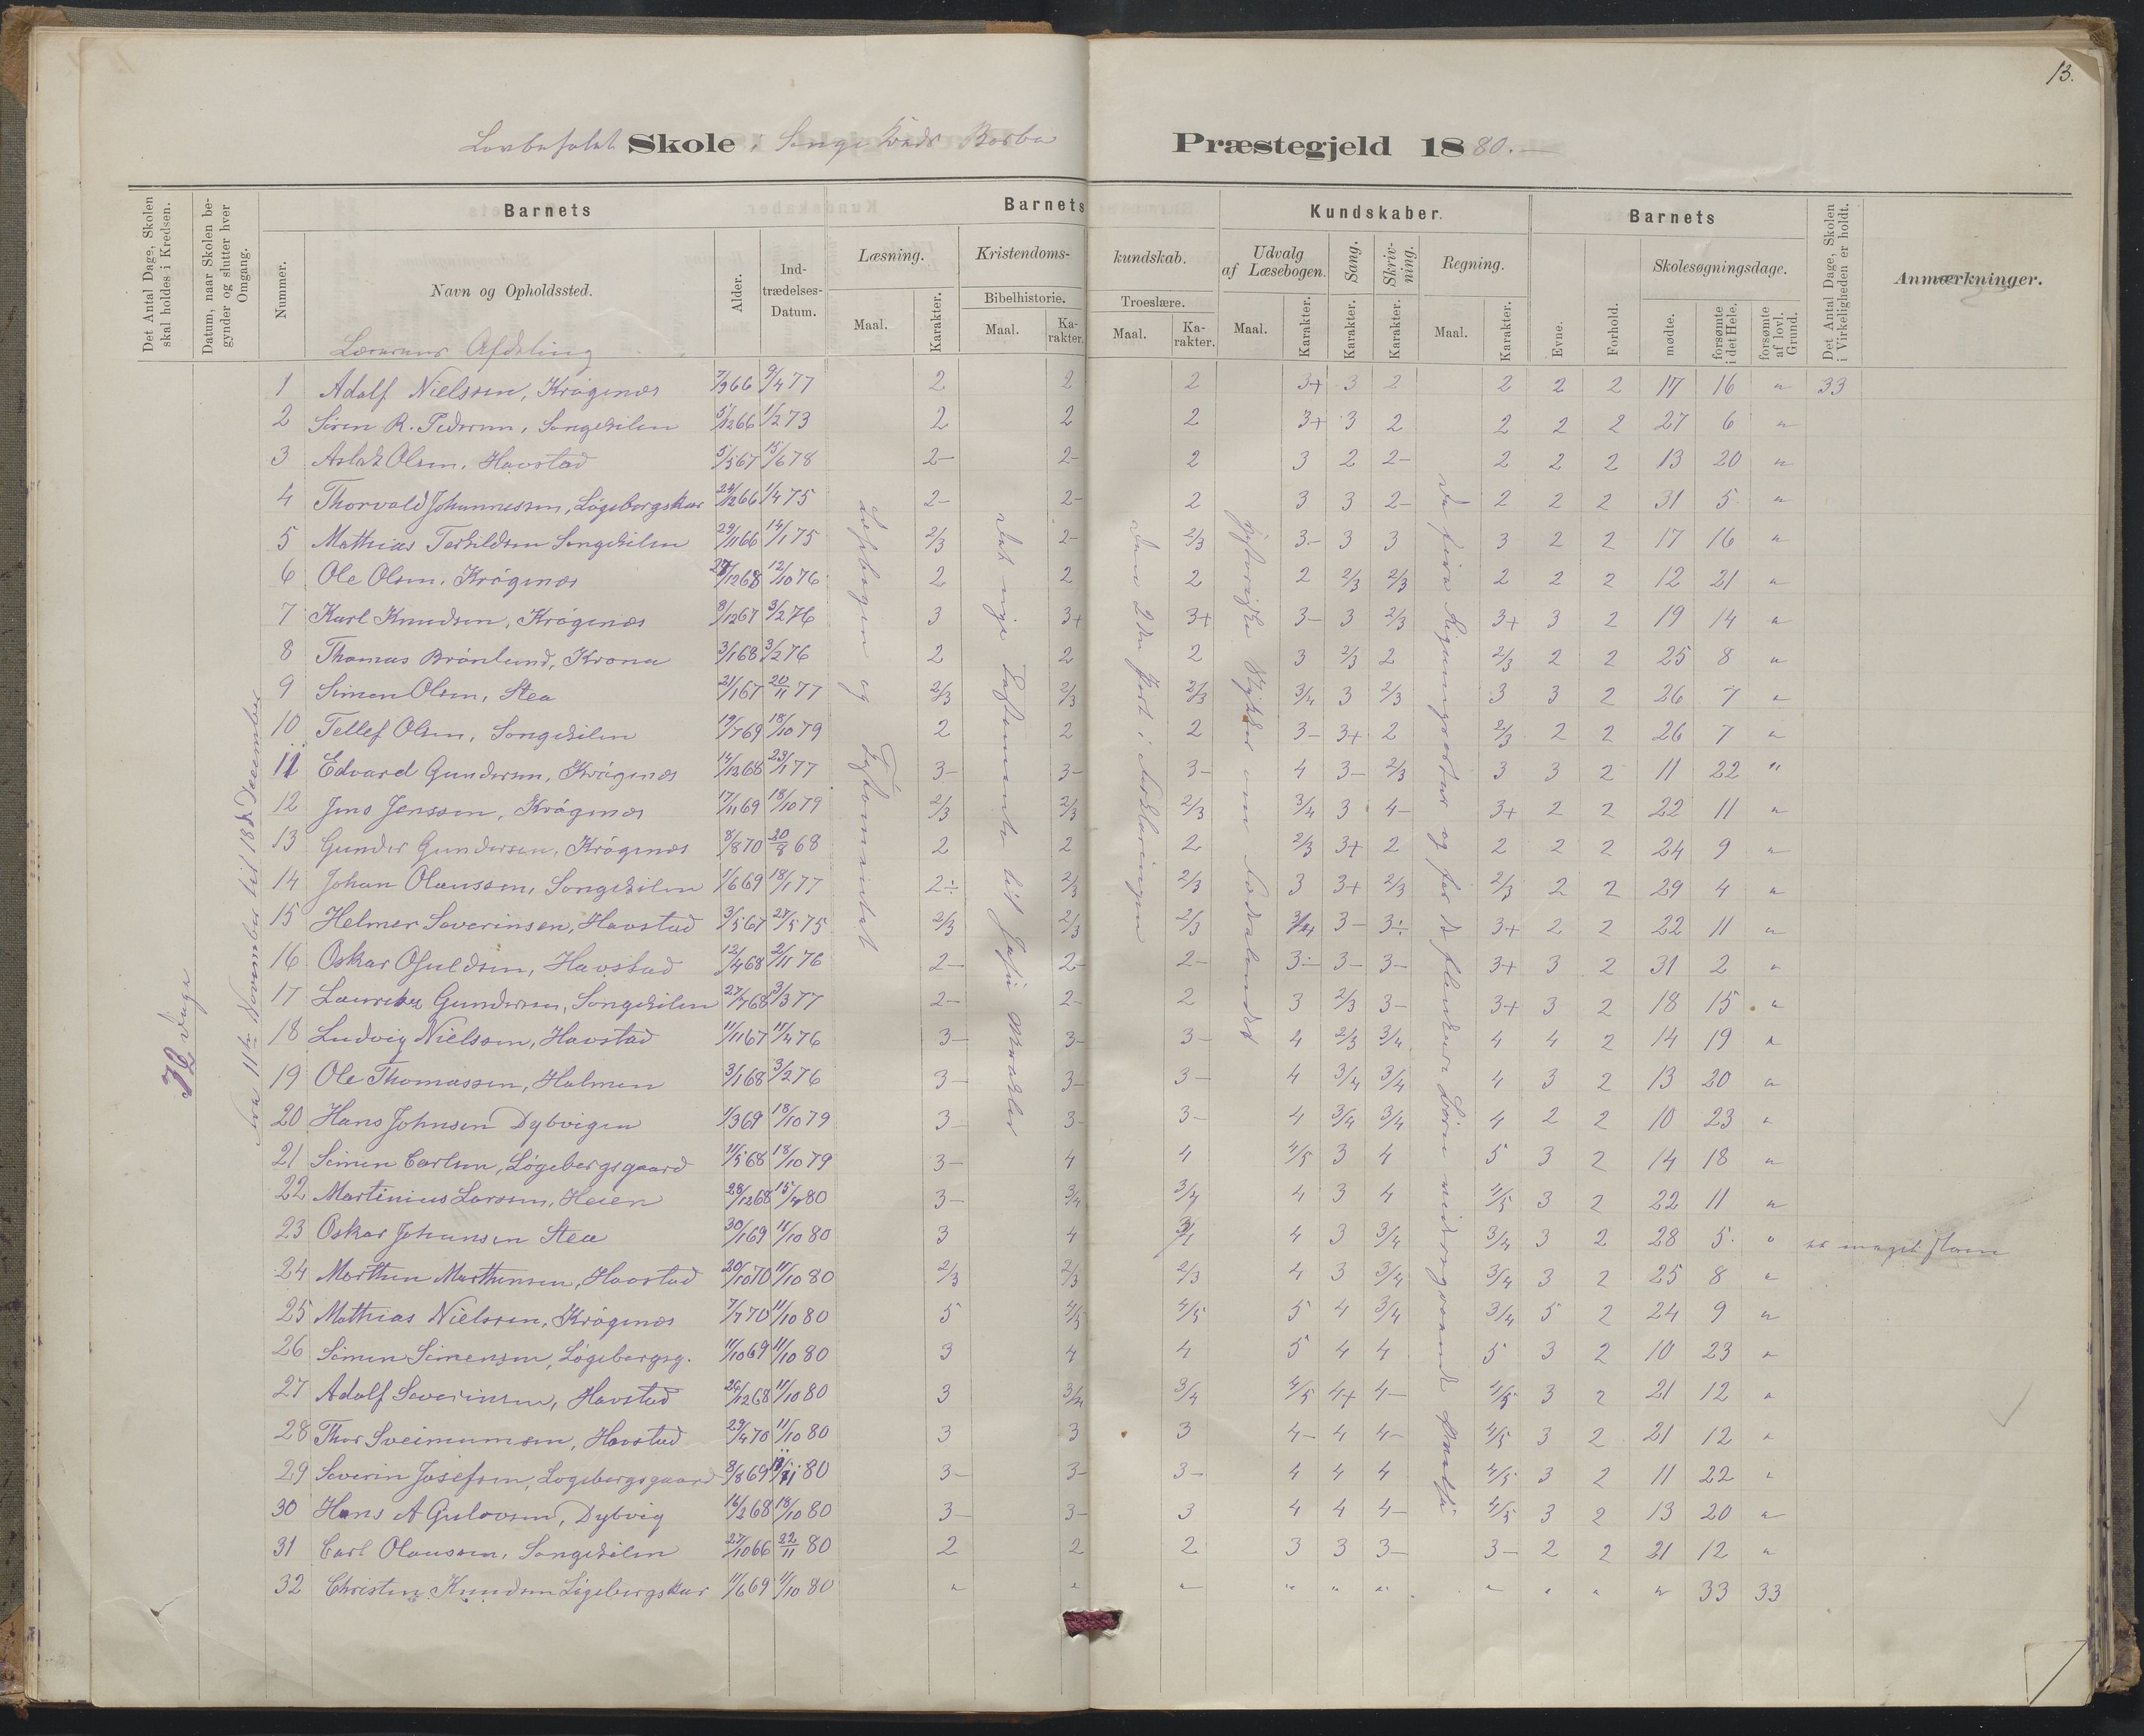 13.
Lovbefalet Skole i Songe Kreds Barbu Præstegjeld 1880.
Det Antal Dage, Skolen skal holdes i Kredsen.
Datum, naar Skolen begynder og slutter hver Omgang.
Barnets
Nummer.
Navn og Opholdssted.
Alder.
Indtrædelses-Datum.
Barnets Kundskaber.
Læsning.
Maal.
Karakter.
Kristendomskundskab.
Bibelhistorie.
Maal.
Karakter.
Troeslære.
Maal.
Karakter.
Udvalg af Læsebogen.
Maal.
Karakter.
Sang.
Karakter.
Skrivning.
Karakter.
Regning.
Maal.
Karakter.
Barnets
Evne.
Forhold.
Skolesøgningsdage.
mødte.
forsømte i det Hele.
forsømte af lovl. Grund.
Det Antal Dage, Skolen i Virkeligheden er holdt.
Anmærkninger.
Afdeling
Dage
fra 11te November til 18de December
Læsebogen og Testamentet
Det nye Testamente til Jesu Mirakler
Den 2den Part i Forklaringen
historiske Stykker om Fædrelandet
1 Adolf Nielssen, Krøgenæs 7/9 66 9/4 77 2 2 2 3+ 3 2 2 2 2 17 16 " 33
2 Søren R. Pedersen, Songekilen 5/12 66 1/2 73 2 2 2 3+ 3 2 2 2 2 27 6 "
3 Aslak Olsen, Havstad 5/5 67 15/6 78 2- 2- 2 3 2 2- 2 2 2 13 20 "
4 Thorvald Johannessen, Løgebergskar 24/12 66 1/4 75 2- 2- 2 3 3 2- 2 2 2 31 5 "
5 Mathias Terkildsen Songekilen 29/11 66 14/1 75 2/3 2- 2/3 3- 3 3 3 2 2 17 16 "
6 Ole Olsen, Krøgenæs 27/12 68 12/10 76 2 2 2 2 2/3 2/3 2 2 2 12 21 "
7 Karl Knudsen, Krøgenæs 8/12 67 3/2 76 3 3+ 3+ 3- 3 2/3 3+ 3 2 19 14 "
8 Thomas Brønlund, Krona 3/1 68 3/2 76 2 2 2 3 2/3 2 2/3 2 2 25 8 "
9 Simen Olsen, Stea 21/1 67 20/11 77 2/3 2/3 2/3 3/4 3 2/3 3 3 2 26 7 "
10 Tellef Olsen, Songekilen 19/7 69 18/10 79 2 2 2 3- 3+ 2 2/3 2 2 26 7 "
11 Edvard Gundersen, Krøgenæs 14/12 68 23/1 77 3- 3- 3- 4 3- 2/3 3 3 2 11 22 "
12 Jens Jenssen, Krøgenæs 17/11 69 18/10 79 2/3 2/3 2/3 3/4 3 4- 3+ 2 2 22 11 "
13 Gunder Gundersen, Krøgenæs 8/8 70 20/8 68 2 2 2 2/3 3+ 2 2 2 2 24 9 "
14 Johan Olaussen, Songekilen 1/6 69 18/1 77 2÷ 2/3 2/3 3 3+ 2/3 2/3 2 2 29 4 "
15 Helmer Severinsen, Havstad 3/5 67 27/5 75 2/3 2/3 2/3 3/4 3- 3÷ 3+ 2 2 22 11 "
16 Oskar Osuldsen, Havstad 12/4 68 2/11 76 2- 2- 2- 3- 3- 3- 3+ 3 2 31 2 "
17 Lauritz Gundersen, Songekilen 27/7 68 3/3 77 2- 2- 2 3 2/3 3- 3+ 3 2 18 15 "
18 Ludvig Nielssen, Havstad 11/11 67 11/4 76 3- 3- 3- 4 2/3 3/4 4 4 2 14 19 "
19 Ole Thomassen, Holmen 3/1 68 3/2 76 3- 3- 3- 4 3/4 3/4 4 3 2 13 20 "
20 Hans Johnsen Dybvigen 1/3 69 18/10 79 3- 3- 3- 4 3/4 3/4 4 2 2 10 23 "
21 Simen Carlsen, Løgebergsgaard 11/5 68 18/10 79 3- 4 4 4/5 3 4 5 3 2 14 18 "
22 Martinius Larsen, Heien 28/12 68 15/4 80 3- 3/4 3/4 4 3 4 4/5 3 2 22 11 "
23 Oskar Johansen Stea 30/1 69 11/10 80 3 4 3/4 4 3 3/4 3/4 3 2 28 5 "
24 Morthen Marthensen, Havstad 20/10 70 11/10 80 2/3 2/3 2/3 4 3 3/4 3/4 3 2 25 8 "
25 Mathias Nielssen, Krøgenæs 7/7 70 11/10 80 5 4/5 4/5 5 4 3/4 3/4 5 2 24 9 "
26 Simen Simensen, Løgebergsg. 11/10 69 11/10 80 3 4 4 5 4 4 5 3 2 10 23 "
27 Adolf Severinsen, Havstad 26/12 68 11/10 80 3 3/4 3/4 4/5 4+ 4- 4/5 3 2 21 12 "
28 Thor Sveinumsen, Havstad 29/4 70 11/10 80 3 3 3 4- 4 4- 4/5 3 2 21 12 "
29 Severin Josefsen, Logebergsgaard 8/8 69 80 3- 3- 3- 4 4 4 4/5 3 2 11 22 "
30 Hans A Gulovsen, Dybvig 16/2 68 18/10 80 3- 3- 3 4 4 4- 4/5 3 2 13 20 "
31 Carl Olaussen, Songekilen 27/10 66 22/11 80 2 2 2 3 3 3- 3- 2 2 21 12 "
32 Christen Knudsen Løgebergskar 11/6 69 11/10 80 " " " " " " " " " " 33 33